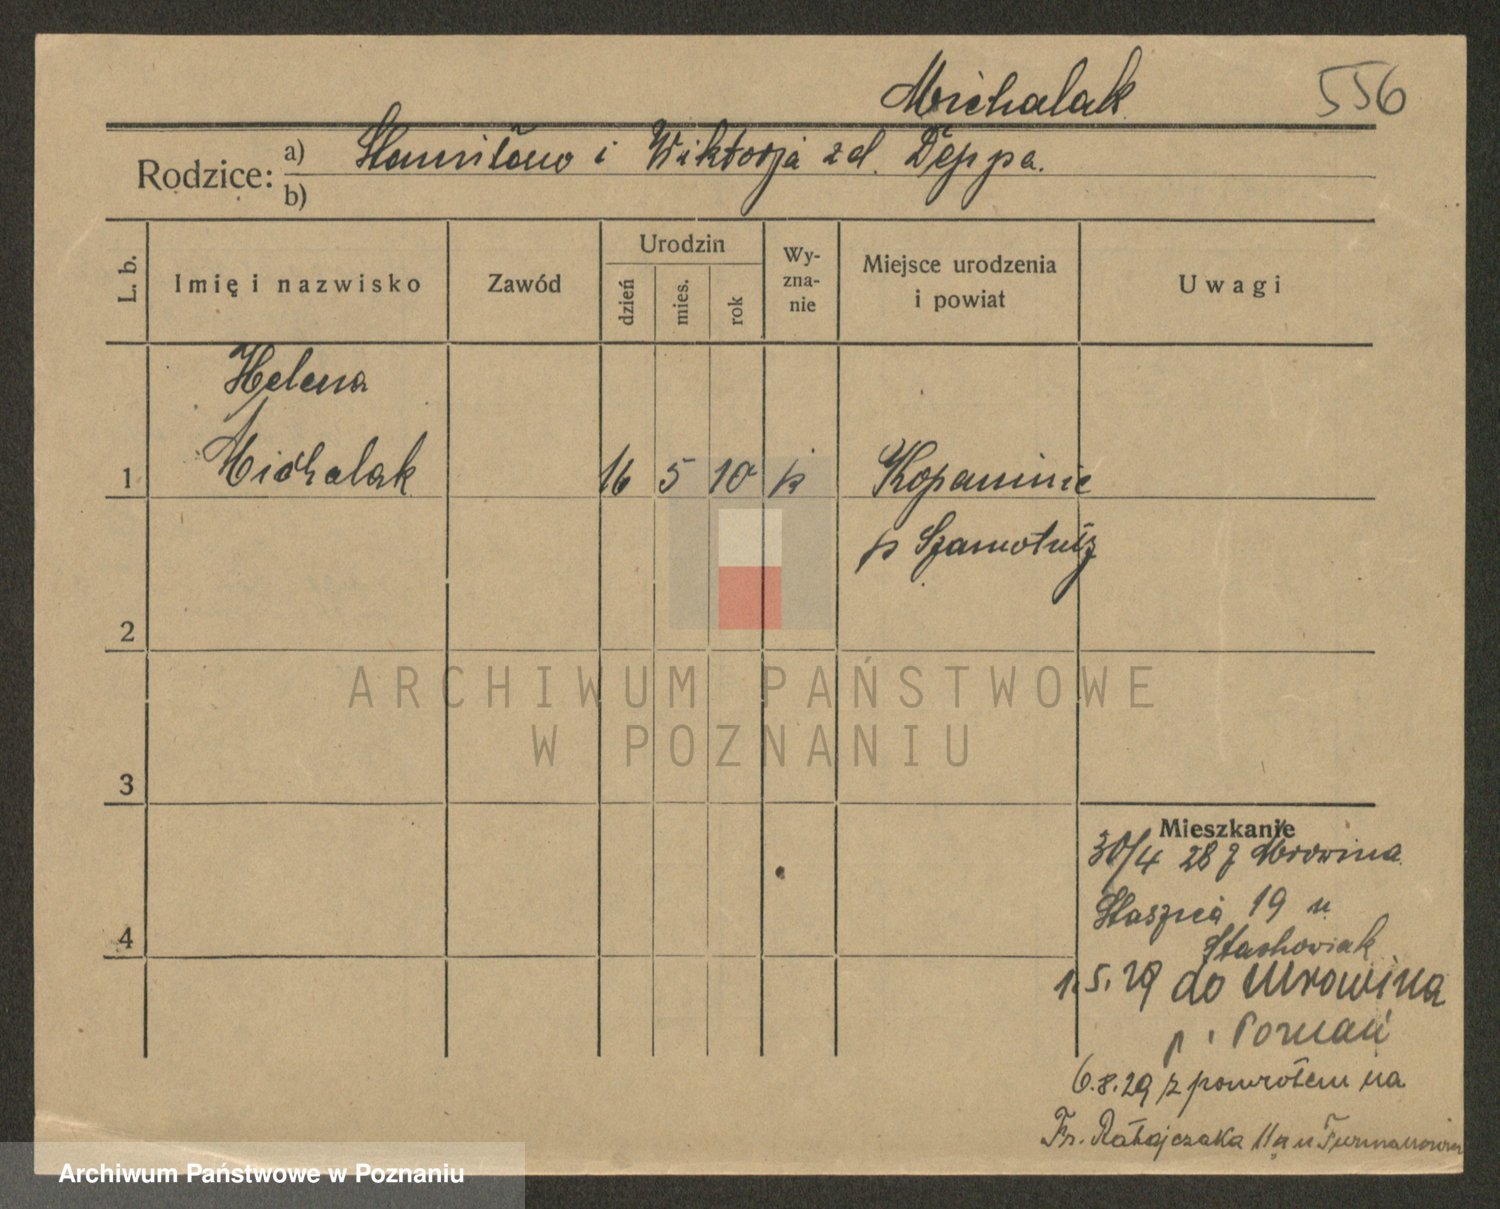 Michalak 556
Rodzice: a) Stanisław i Wiktorja z d. Deppa.
b)
L. b. Imię i nazwisko Zawód Urodzin dzień mies. rok Wy-zna-nie Miejsce urodzenia i powiat Uwagi
Helena
1 Michalak 16 5 10 k Kopaninie
p Szamotuły
2
3
Mieszkanie
30/4 28 z Mrowina
Staszica 19 u
4 Stachowiak
1.5.29 do Mrowina
p. Poznań
6.8.29 z powrotem na
Fr. Ratajczaka 11a u
ARCHIWUM PAŃSTWOWE
W POZNANIU
Archiwum Państwowe w Poznaniu